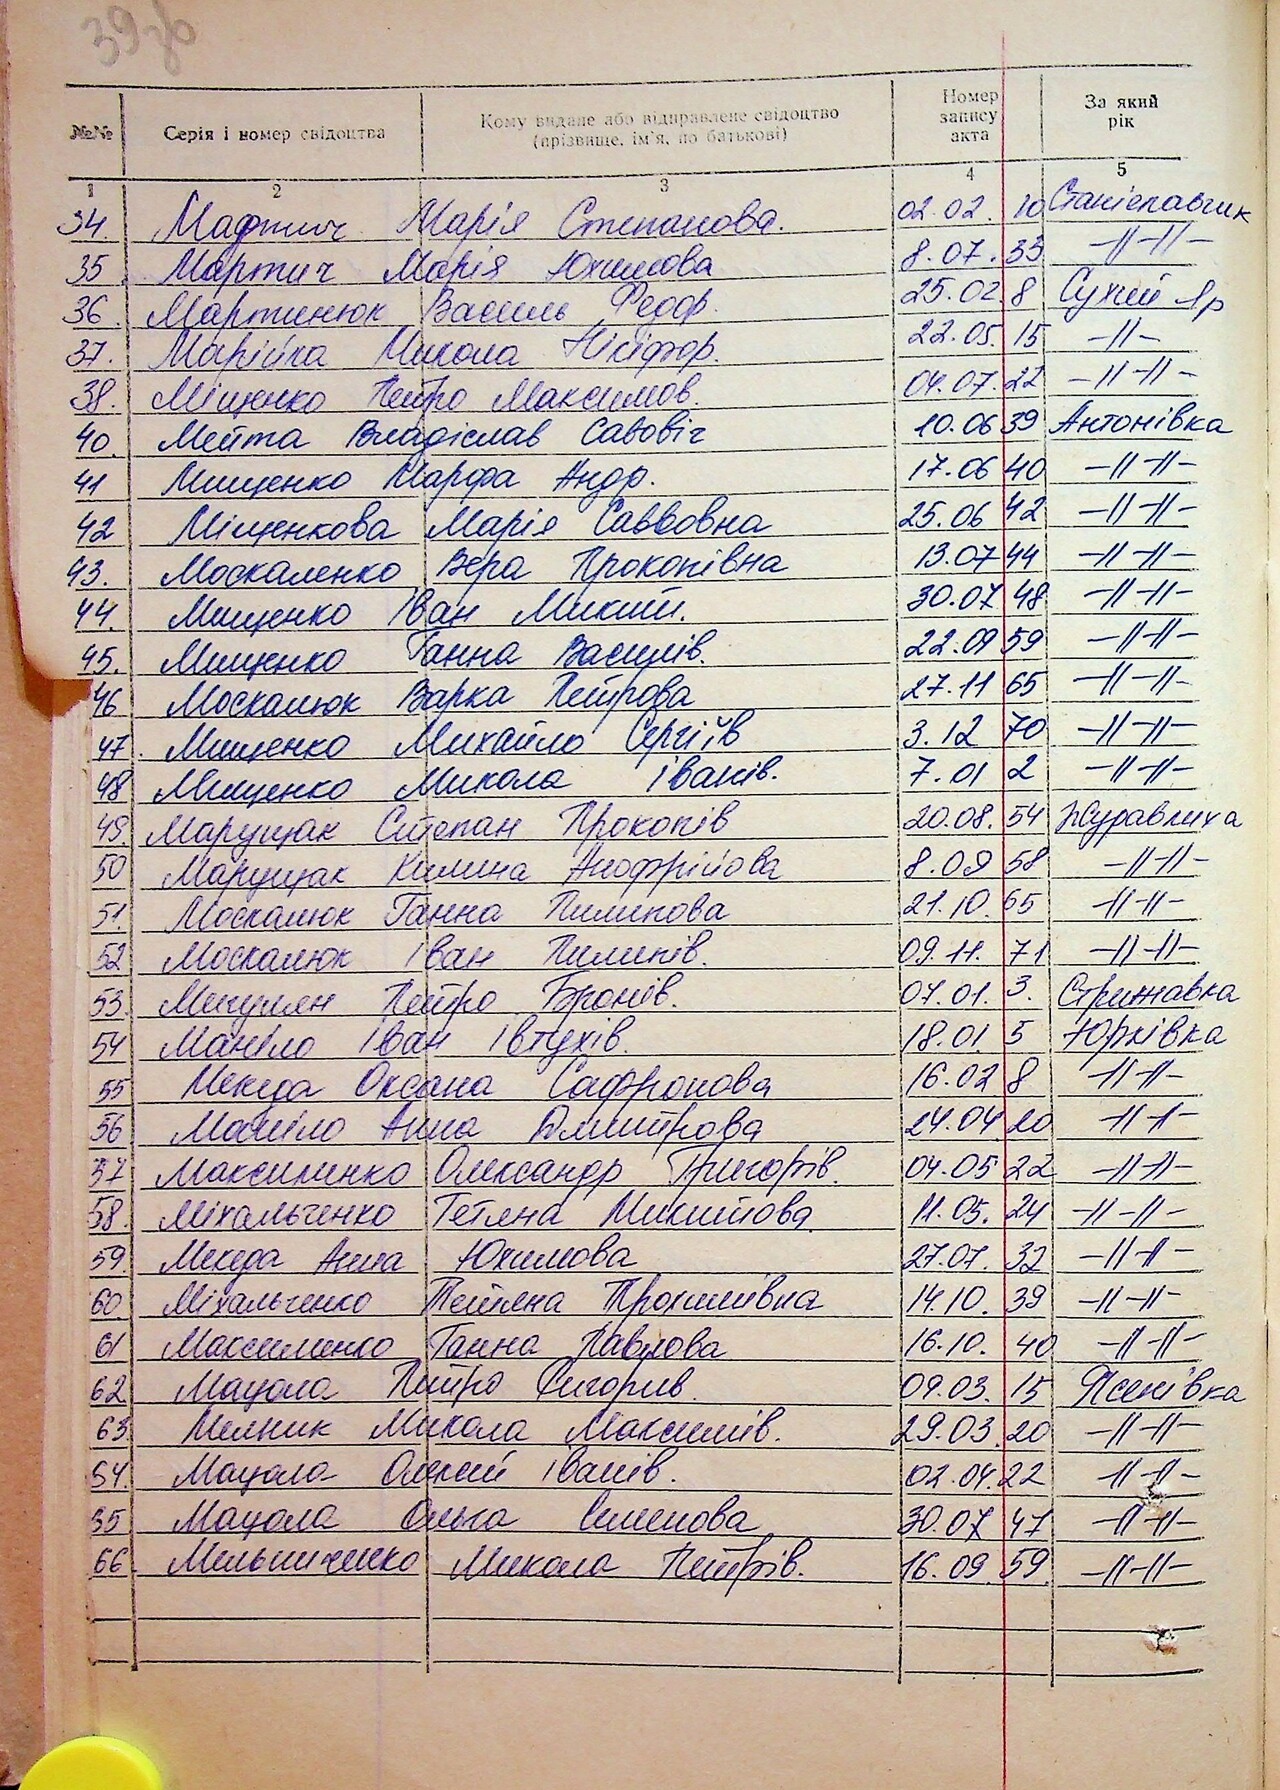 39зв
№№ Серія і номер свідоцтва Кому видане або відправлене свідоцтво (прізвище, ім'я, по батькові) Номер запису акта За який рік
1 2 3 4 5
34. Мартич Марія Степанова. 02.02. 10 Станіславчик
35 Мартич Марія Юхимова 8.07. 33 -//-//-
36. Мартинюк Василь Федор. 25.02. 8 Сухий Яр
37. Марійка Микола Нікіфор. 22.05. 15 -//-
38. Міщенко Петро Максимов. 04.07. 22 -//-//-
40. Мейта Владіслав Савовіч 10.06 39 Антонівка
41 Мищенко Марфа Андр. 17.06 40 -//-//-
42 Міщенкова Марія Саввовна 25.06 42 -//-//-
43. Москаленко Вера Прокопівна 13.07 44 -//-//-
44. Мищенко Іван Микит. 30.07 48 -//-//-
45. Мищенко Ганна Василів. 22.09 59 -//-//-
46 Москалюк Варка Петрова 27.11 65 -//-//-
47. Мищенко Михайло Сергіїв 3.12 70 -//-//-
48 Мищенко Микола Іванів. 7.01 2 -//-//-
49. Марущак Степан Прокопів 20.08. 54 Журавлиха
50 Марущак Килина Анофрійова 8.09 58 -//-//-
51. Москалюк Ганна Пилипова 21.10. 65 -//-//-
52 Москалюк Іван Пилипів. 09.11. 71 -//-//-
53. Петро Бронів. 07.01. 3. Стрижавка
54 Маніло Іван Івтухів. 18.01. 5 Юрківка
55 Мекеда Оксана Сафронова 16.02 8 -//-//-
56 Маніло Анна Дмитрова 24.04 20 -//-//-
57 Максименко Олександр Григорів. 04.05 22 -//-//-
58. Міхальченко Тетяна Микитова 11.05. 24 -//-//-
59. Мекеда Анна Юхимова 27.07. 32 -//-//-
60. Міхальченко Тетяна Прокопівна 14.10. 39 -//-//-
61 Максименко Ганна Павлова 16.10. 40 -//-//-
62 Мацола Петро Григорів. 09.03. 15 Ясенівка
63. Мелник Микола Максимів. 29.03. 20 -//-//-
64. Мацола Олексій Іванів. 02.04. 22 -//-//-
65 Мацола Ольга Семенова 30.07 47 -//-//-
66 Мельниченко Микола Петрів. 16.09. 59. -//-//-